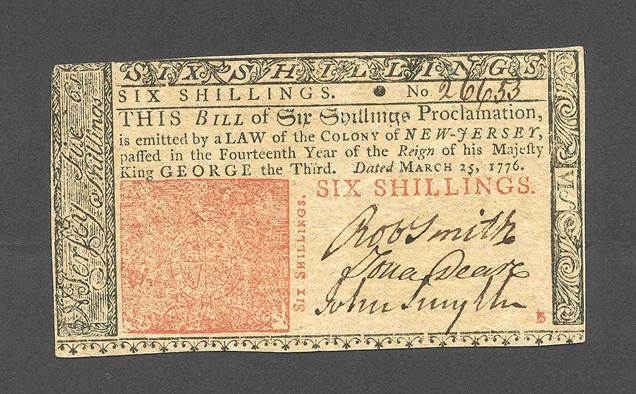 SIX SHILLINGS
SIX SHILLINGS. No. 26653
THIS BILL of Six Shillings Proclamation,
is emitted by a LAW of the COLONY of NEW-JERSEY,
paſſed in the Fourteenth Year of the Reign of his Majeſty
King GEORGE the Third. Dated MARCH 25, 1776.
SIX SHILLINGS.
SIX SHILLINGS.
Rob Smith
Jona Deare
John Smyth
Jerſey
Shillings
VI S